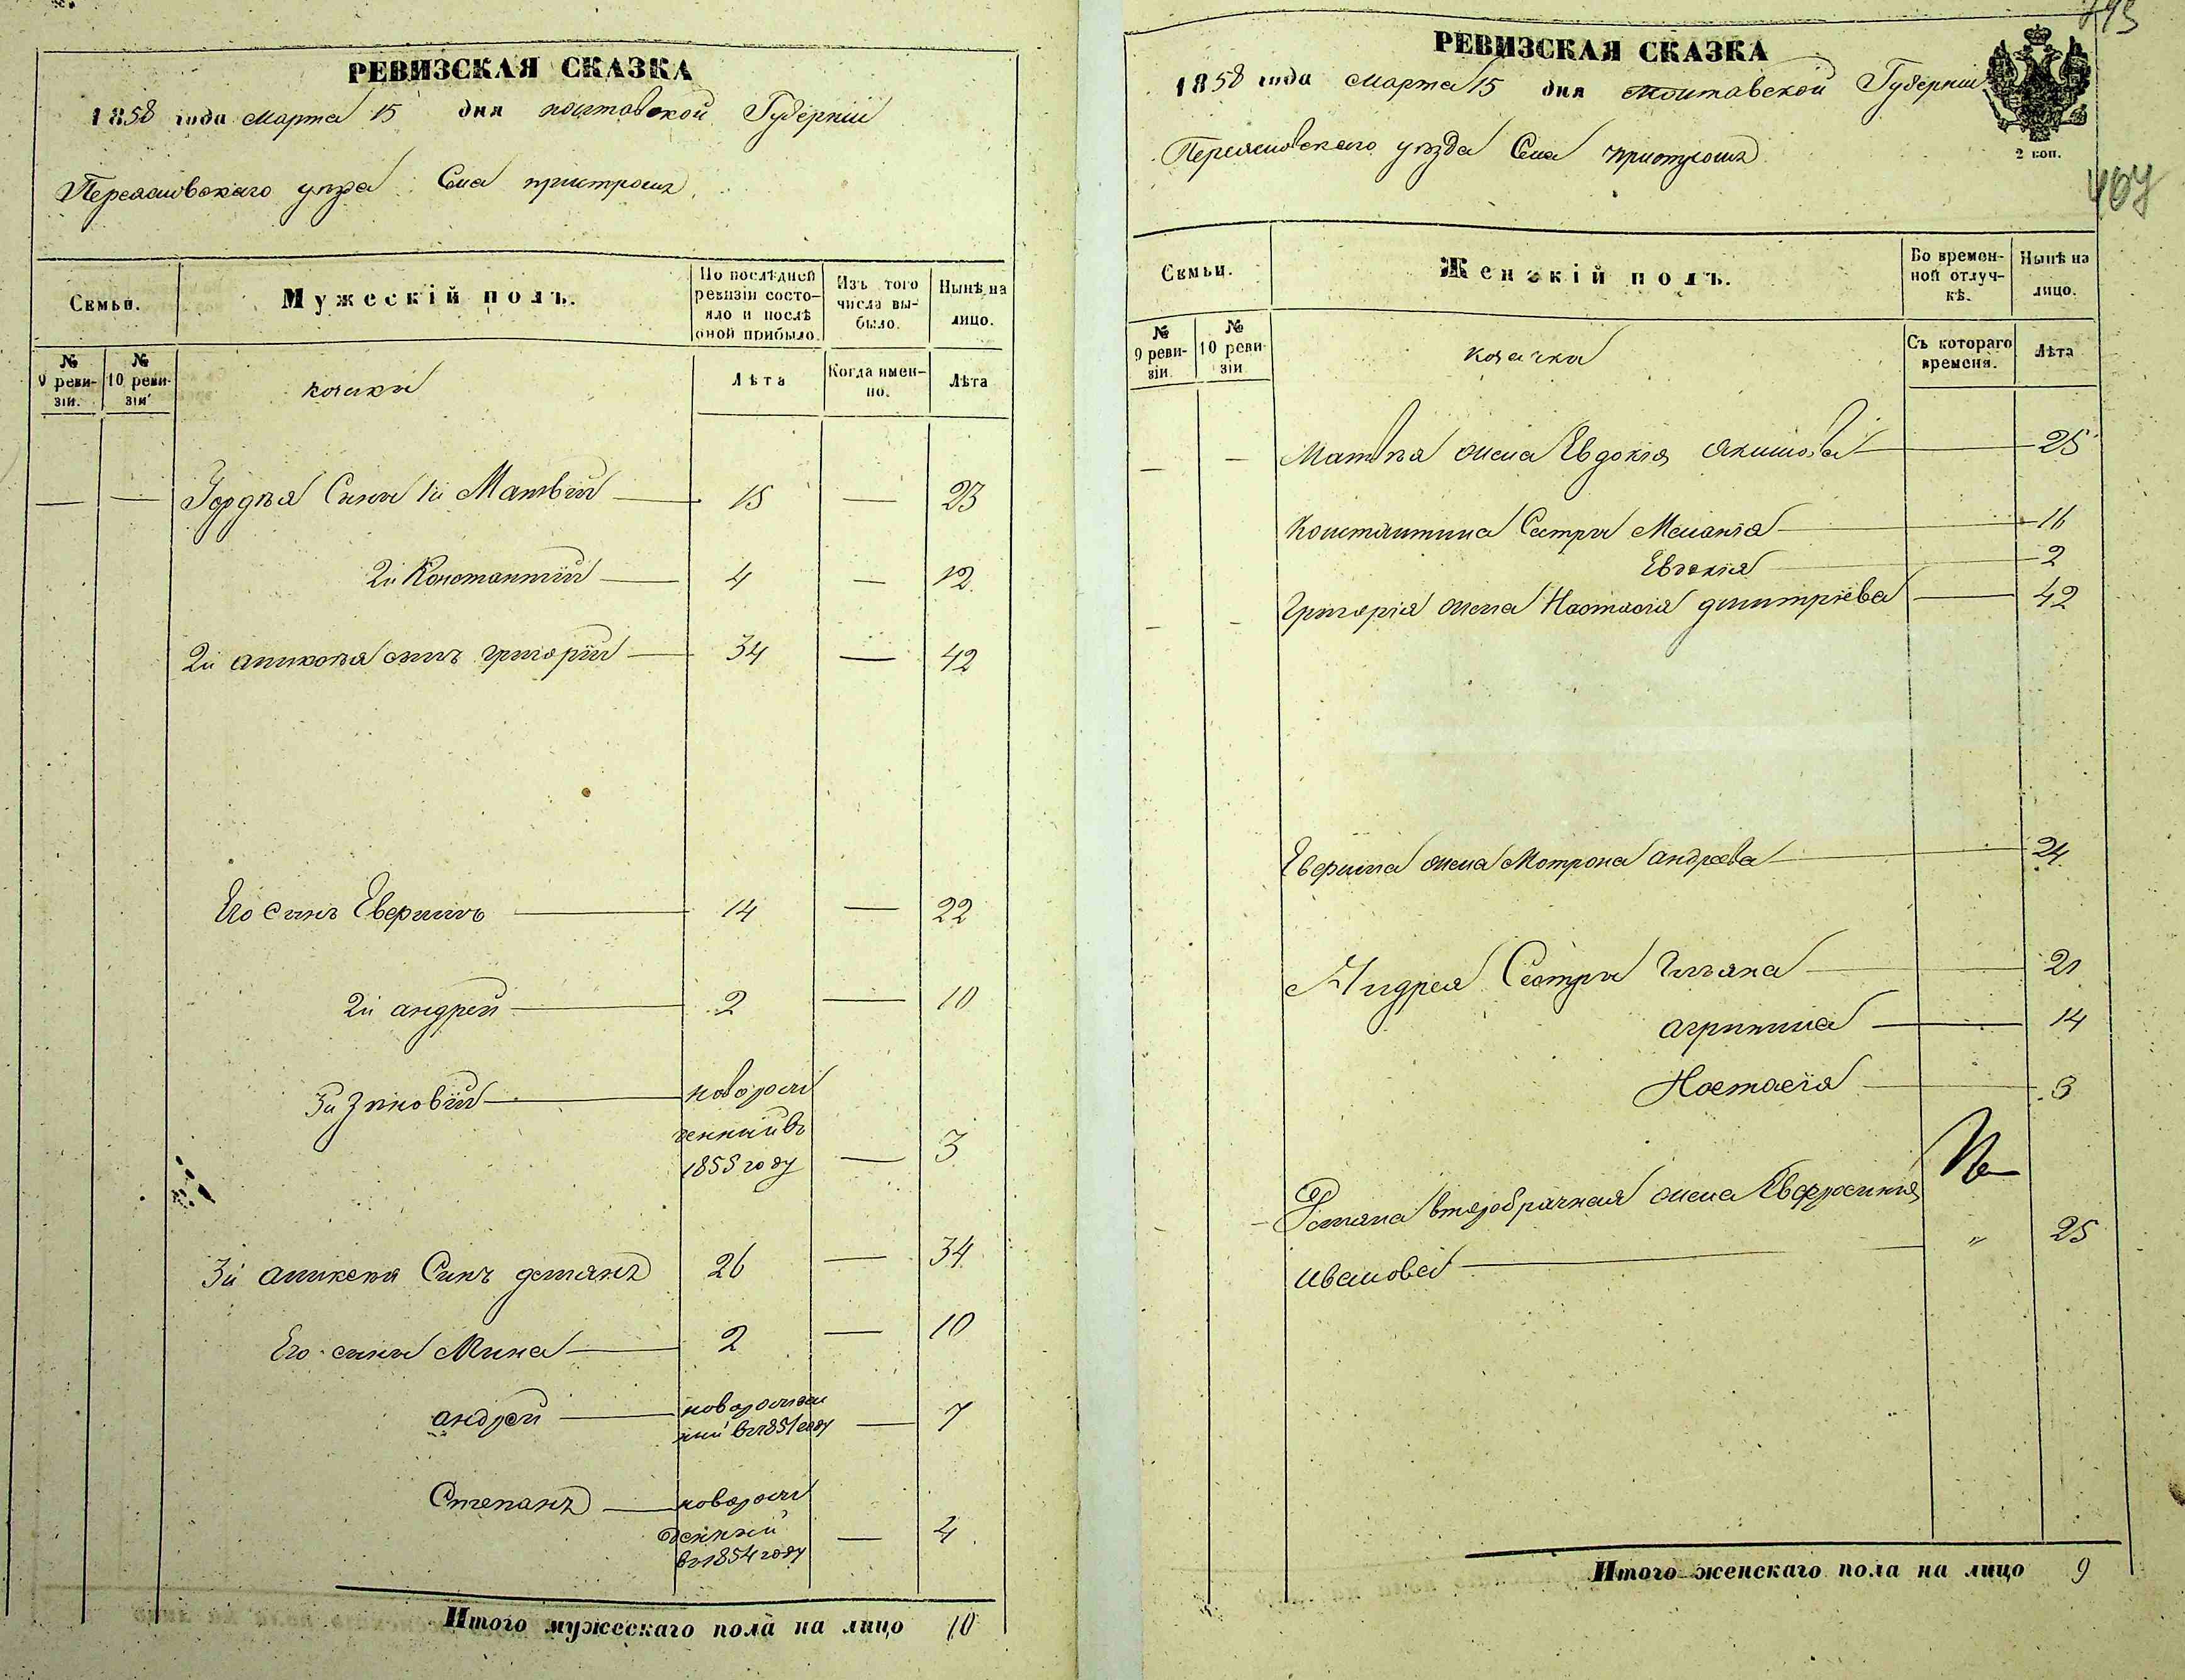 РЕВИЗСКАЯ СКАЗКА
1858 года марта 15 дня полтавской Губернии
Переясловскаго уезда Села пристромъ
Семьи.
Мужескій полъ.
По послѣдней ревизіи состояло и послѣ оной прибыло.
Изъ того числа выбыло.
Нынѣ на лицо.
№ 9 ревизіи.
№ 10 ревизіи
козаки
Лѣта
Когда именно.
Лѣта
— — Гордѣя Сыны 1й Матвѣй — 15 — 23
2й Константий — 4 — 12
2й аникѣя сынъ григорій — 34 — 42
Его сынъ Еверимъ — 14 — 22
2й андрей — 2 — 10
3й Зѣновій — новорож
денный въ
1855 году — 3
3й аникея Сынъ демянъ 26 — 34
Его сыны Мина — 2 — 10
андрей — новорожден
ный въ 1851 году — 7
Степанъ — новорож
денный
въ 1854 году — 4
Итого мужескаго пола на лицо 10
РЕВИЗСКАЯ СКАЗКА
1858 года марта 15 дня Полтавской Губерніи
Переясловскаго уѣзда Села
2 коп.
407
Семьи.
Женскій полъ.
Во временной отлучкѣ.
Нынѣ на лицо.
№ 9 ревизіи
№ 10 ревизіи
козачки
Съ котораго времени.
Лѣта
— — Матвѣя жена Евдокія Акимова — 25
Константина Сестры Меланія — 16
Евдокія — 2
— — Григорія жена Настасія дмитріева — 42
Еверима жена Мотрона андреева — 24
Андрея Сестры Ульяна — 21
агрипина — 14
Настасія — 3
Демяна второбрачная жена Евфросинія
Иванова — " 25
Итого женскаго пола на лицо 9